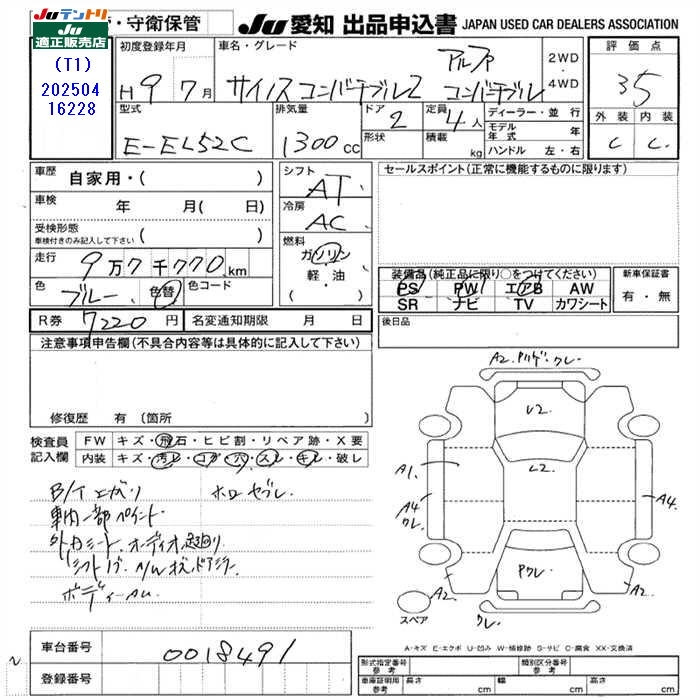 Juテントリ
適正販売店
(T1)
202504
16228
・守衛保管
Ju 愛知 出品申込書 JAPAN USED CAR DEALERS ASSOCIATION
初度登録年月
H 9 7月
車名・グレード
サイノス コンバーチブル2
アルファ
コンバーチブル
2WD
・
4WD
評価点
35
外装 内装
C C
型式
E-EL52C
排気量
1300cc
ドア
2
形状
定員
4人
積載
kg
ディーラー・並行
モデル年式 年
ハンドル 左・右
車歴
自家用・( )
車検
年 月( 日)
受検形態
車検付きのみ記入して下さい ( )
走行
9万7千770km
色
ブルー
色替
色コード
シフト
AT
冷房
AC
燃料
ガソリン
・
軽・油
( )
セールスポイント(正常に機能するものに限ります)
装備品(純正品に限り○をつけてください)
PS PW エアB AW
SR ナビ TV カワシート
新車保証書
有・無
R券 7220円
名変通知期限 月 日
後日品
注意事項申告欄(不具合内容等は具体的に記入して下さい)
修復歴 有 〔箇所 〕
検査員
記入欄
FW キズ・飛石・ヒビ割・リペア跡・X要
内装 キズ・汚レ・コゲ・穴・スレ・キレ・破レ
B/T エガリ
ホロ ヤブレ
車内一部ペイント
外カシート、オーディオ廻り
シフトノブ
ボディーAU
A2
クレ
U2
L2
A1
A4
クレ
A4
A2
Pクレ
A2
クレ
スペア
A-キズ E-エクボ U-凹み W-補修跡 S-サビ C-腐食 XX-交換済
車台番号 0018491
登録番号
型式指定番号
参考
類別区分番号
参考
車庫証明用
参考
長さ cm
幅 cm
高さ cm